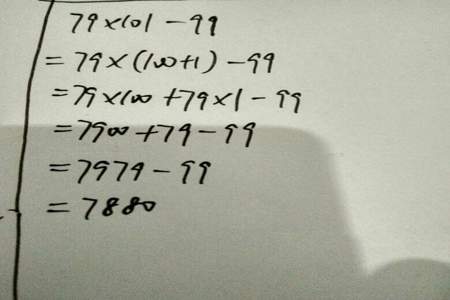 79×101-99
=79×(100+1)-99
=79×100+79×1-99
=7900+79-99
=7979-99
=7880